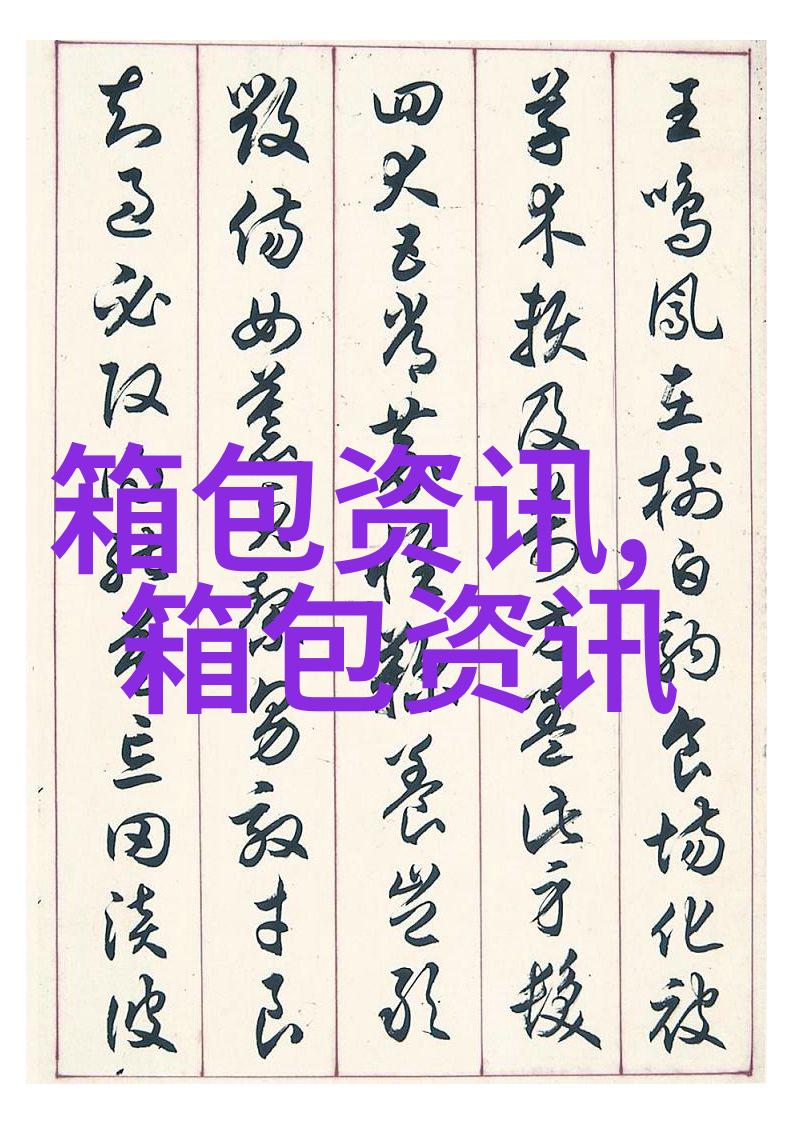 王鳴鳳在樹白駒食場化被
草木賴及萬方蓋此身髮
四大五常恭惟鞠養豈敢
毀傷女慕貞絜男效才良
知過必改得能莫忘罔談彼
箱包资讯,
箱包资讯